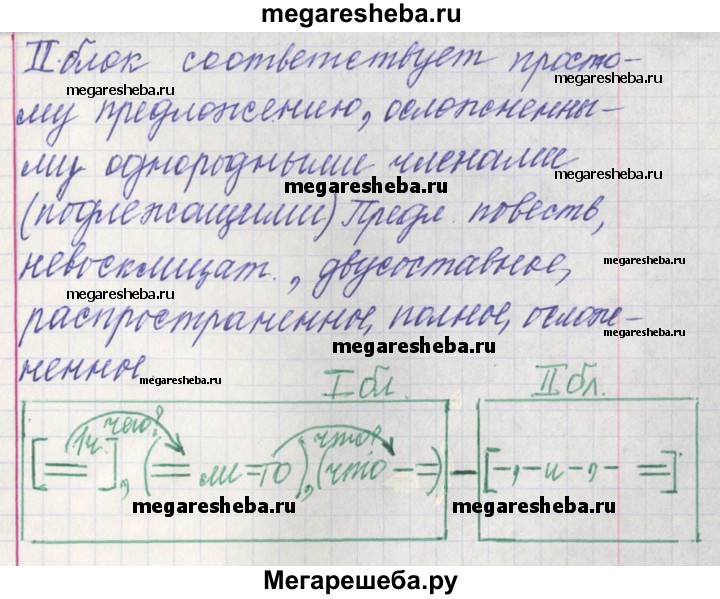 megaresheba.ru
II блок соответствует просто-
megaresheba.ru
megaresheba.ru
му предложению, осложненны-
му однородными членами
megaresheba.ru
(подлежащими) Предл. повеств,
невосклицат., двусоставное,
megaresheba.ru
megaresheba.ru
распространенное, полное, ослож-
megaresheba.ru
megaresheba.ru
ненное
megaresheba.ru
I бл. II бл.
1ч. чего? что?
[=], (= ли = то), (что - =) - [-, - и -, - =].
megaresheba.ru megaresheba.ru
Мегарешеба.ру